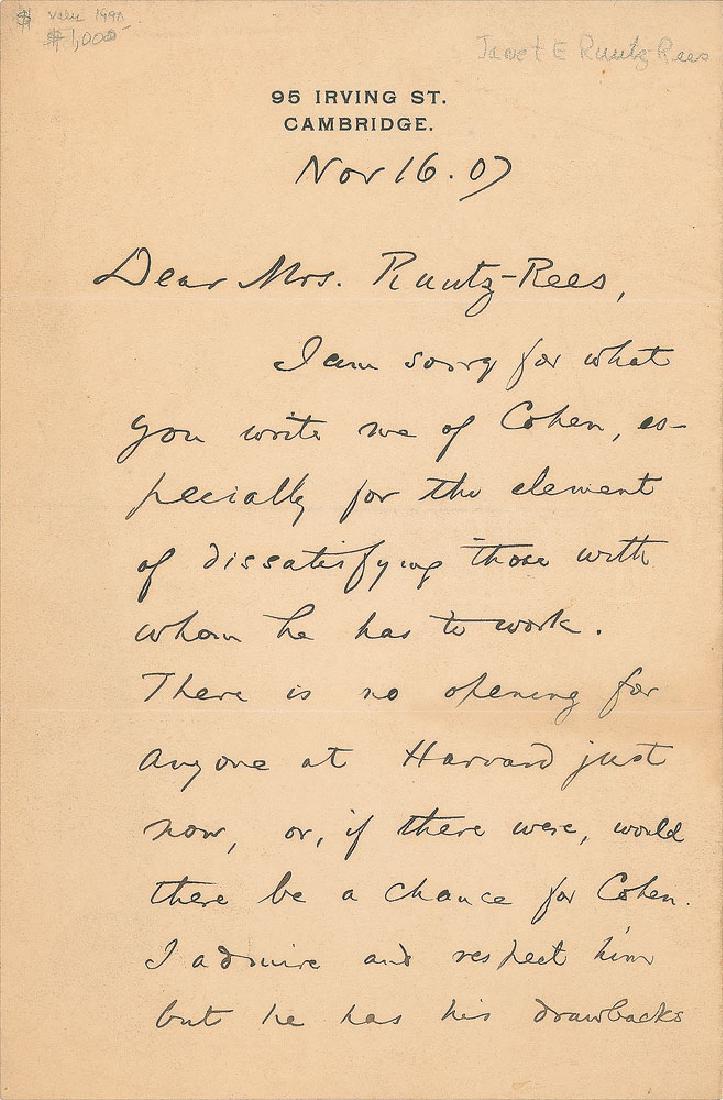 $ value 199
$1,000
Janet E Ruutz-Rees
95 IRVING ST.
CAMBRIDGE.
Nov 16. 07
Dear Mrs. Ruutz-Rees,
I am sorry for what
you write me of Cohen, es-
pecially for the element
of dissatisfying those with
whom he has to work.
There is no opening for
anyone at Harvard just
now, or, if there were, would
there be a chance for Cohen.
I admire and respect him
but he has his drawbacks